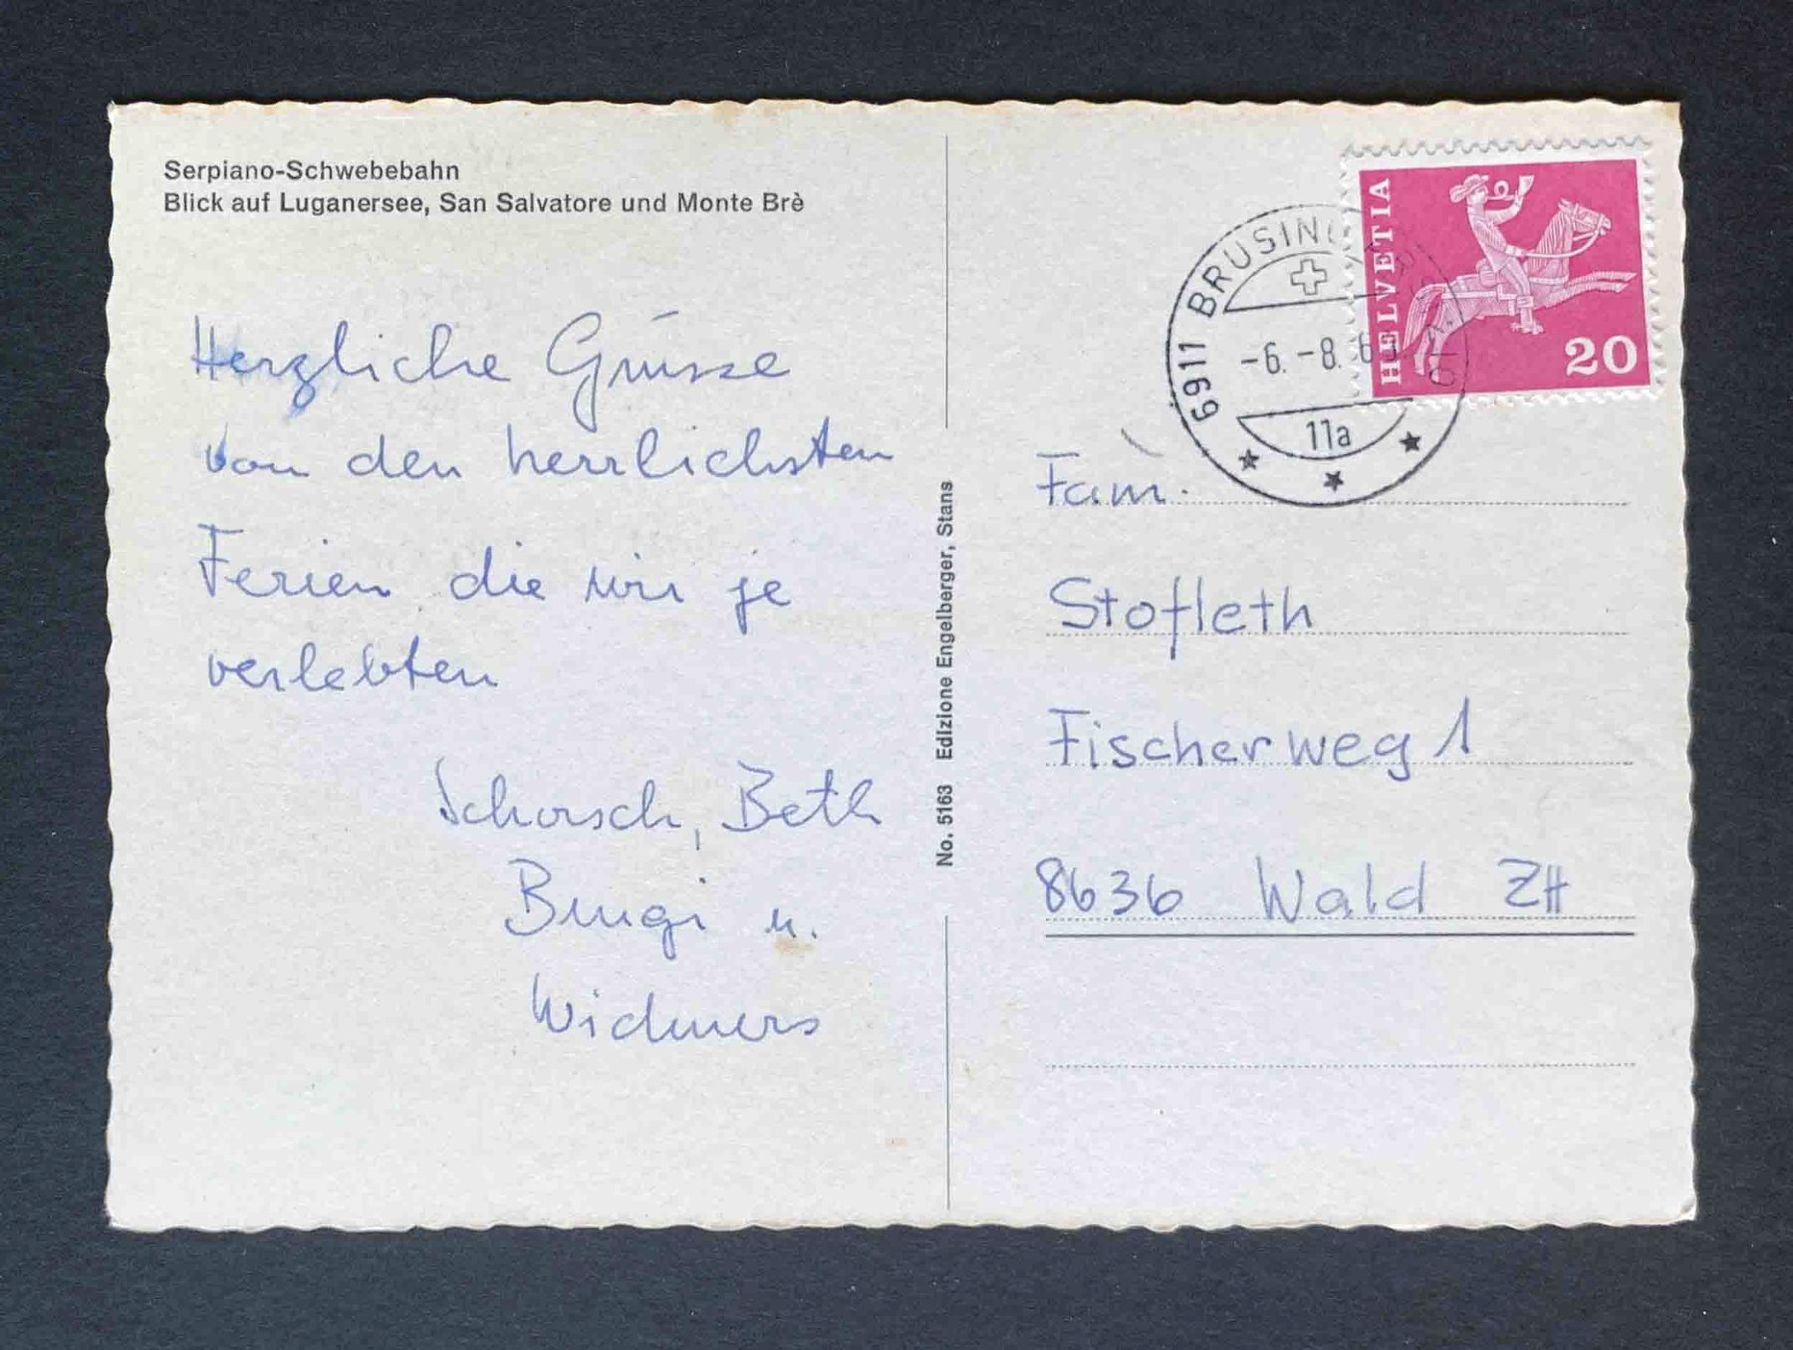 Serpiano-Schwebebahn
Blick auf Luganersee, San Salvatore und Monte Brè
Herzliche Grüsse
von den herrlichsten
Ferien die wir je
verlebten
Schorsch, Beth
u.
Widmers
No. 5163 Edizione Engelberger, Stans
HELVETIA
20
6911 BRUSINO
-6.-8.
11a
Fam.
Stofleth
Fischerweg 1
8636 Wald ZH